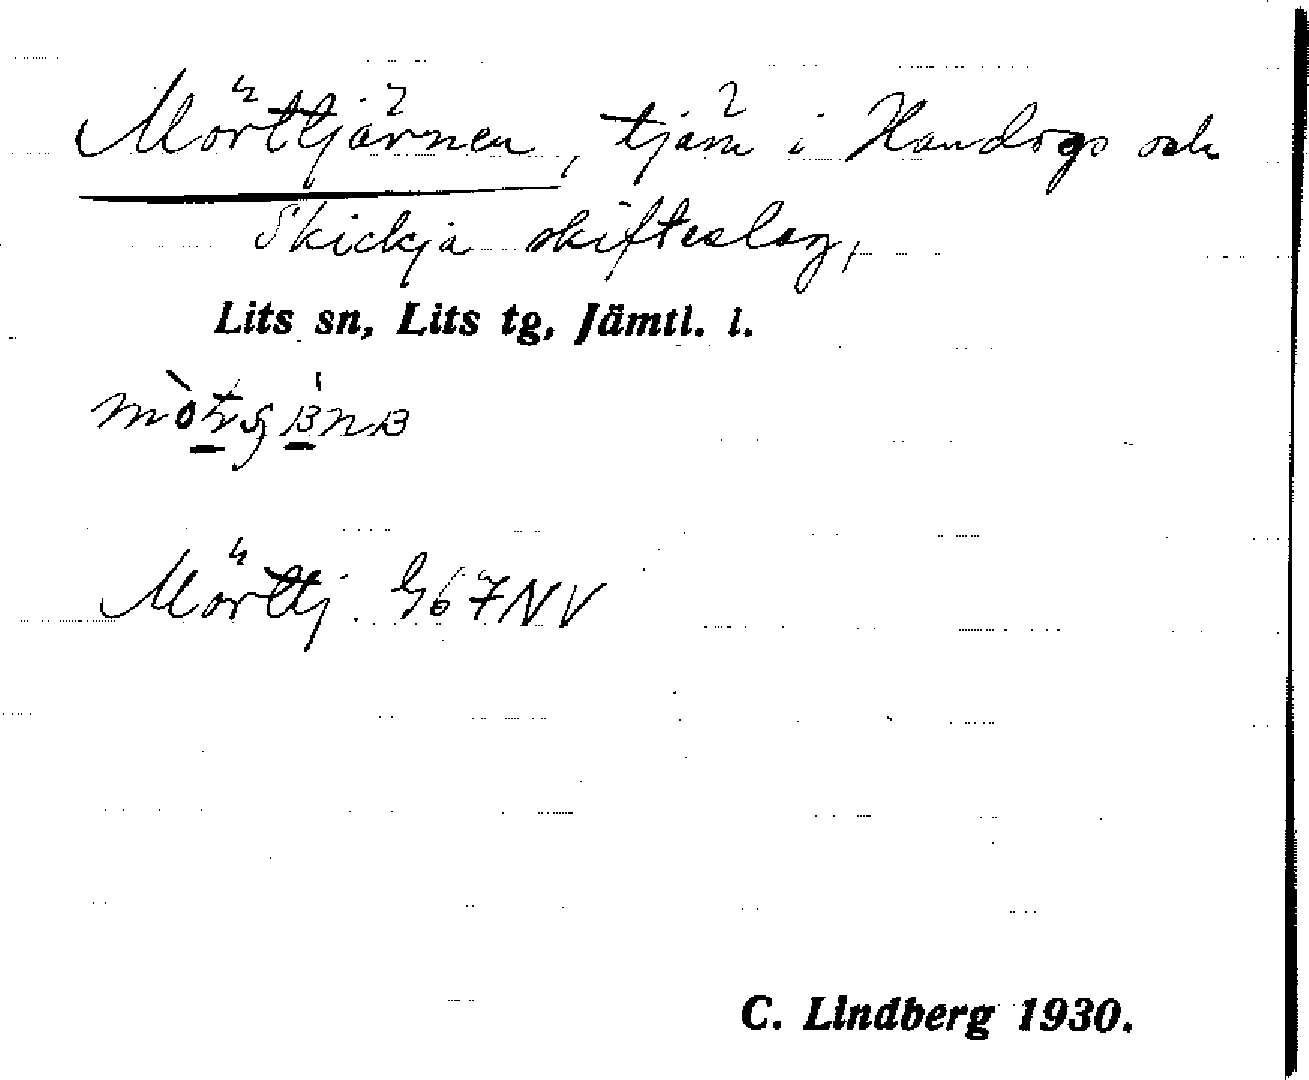 Mörttjärnen, tjärn i Handogs och
Skickja skifteslag,
Lits sn, Lits tg, Jämtl. l.
Mörttj. G67NV
C. Lindberg 1930.